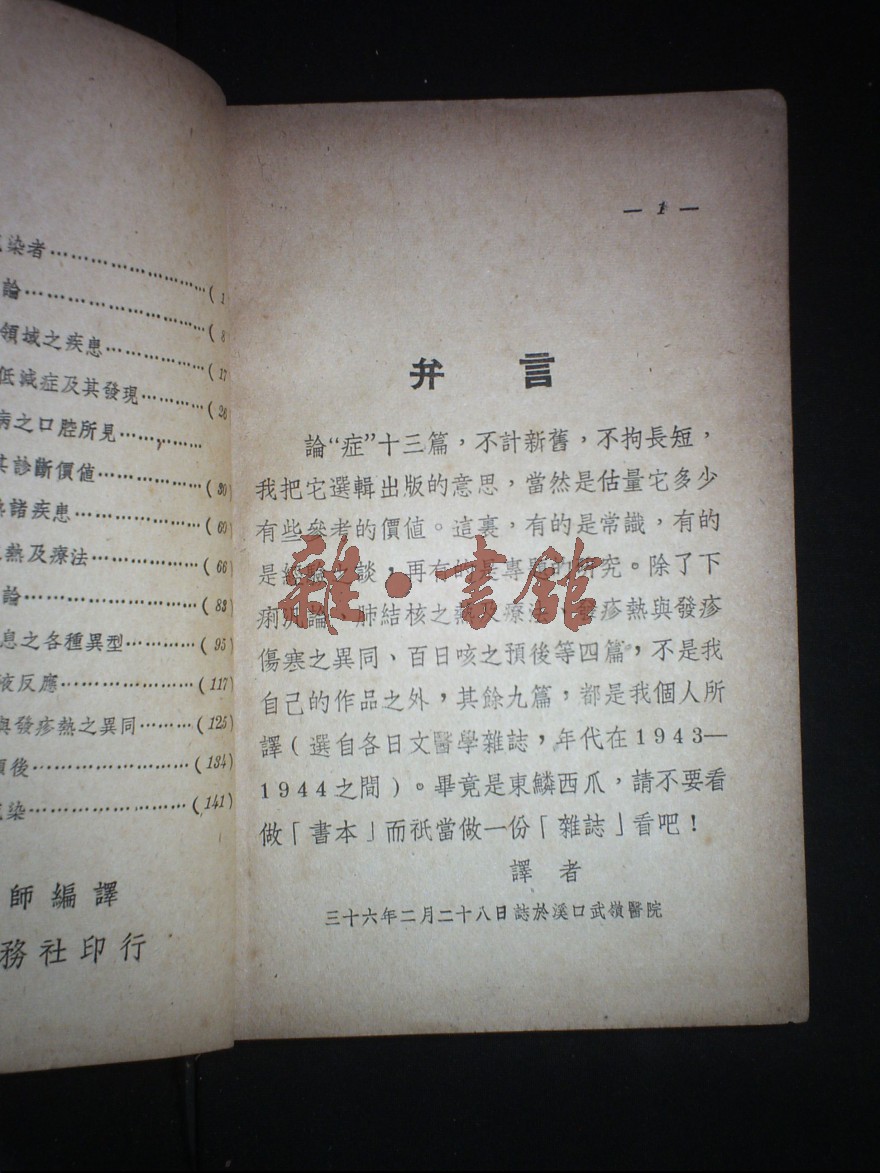 染者……………………(1
論……………………(8
領域之疾患……………(17
低減症及其發現………(26
病之口腔所見…………
其診斷價值……………(30)
諸疾患…………………(60)
熱及療法………………(66
論………………………(83
息之各種異型…………(95)
液反應…………………(117)
與發疹熱之異同………(125)
預後……………………(134)
染………………………(141)
師編譯
務社印行
— 1 —
弁言
論“症”十三篇，不計新舊，不拘長短，
我把它選輯出版的意思，當然是估量它多少
有些參考的價值。這裏，有的是常識，有的
是經驗之談，再有的是專題的研究。除了下
痢汎論、肺結核之熱及療法、發疹熱與發疹
傷寒之異同、百日咳之預後等四篇，不是我
自己的作品之外，其餘九篇，都是我個人所
譯（選自各日文醫學雜誌，年代在1943—
1944之間）。畢竟是東鱗西爪，請不要看
做「書本」而祇當做一份「雜誌」看吧！
譯者
三十六年二月二十八日誌於溪口武嶺醫院
雜·書館